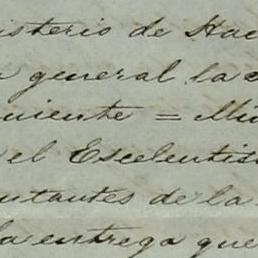 isterio de Hac
general la c
uiente = Min
el Escelentisi
utantes de la
la entrega que